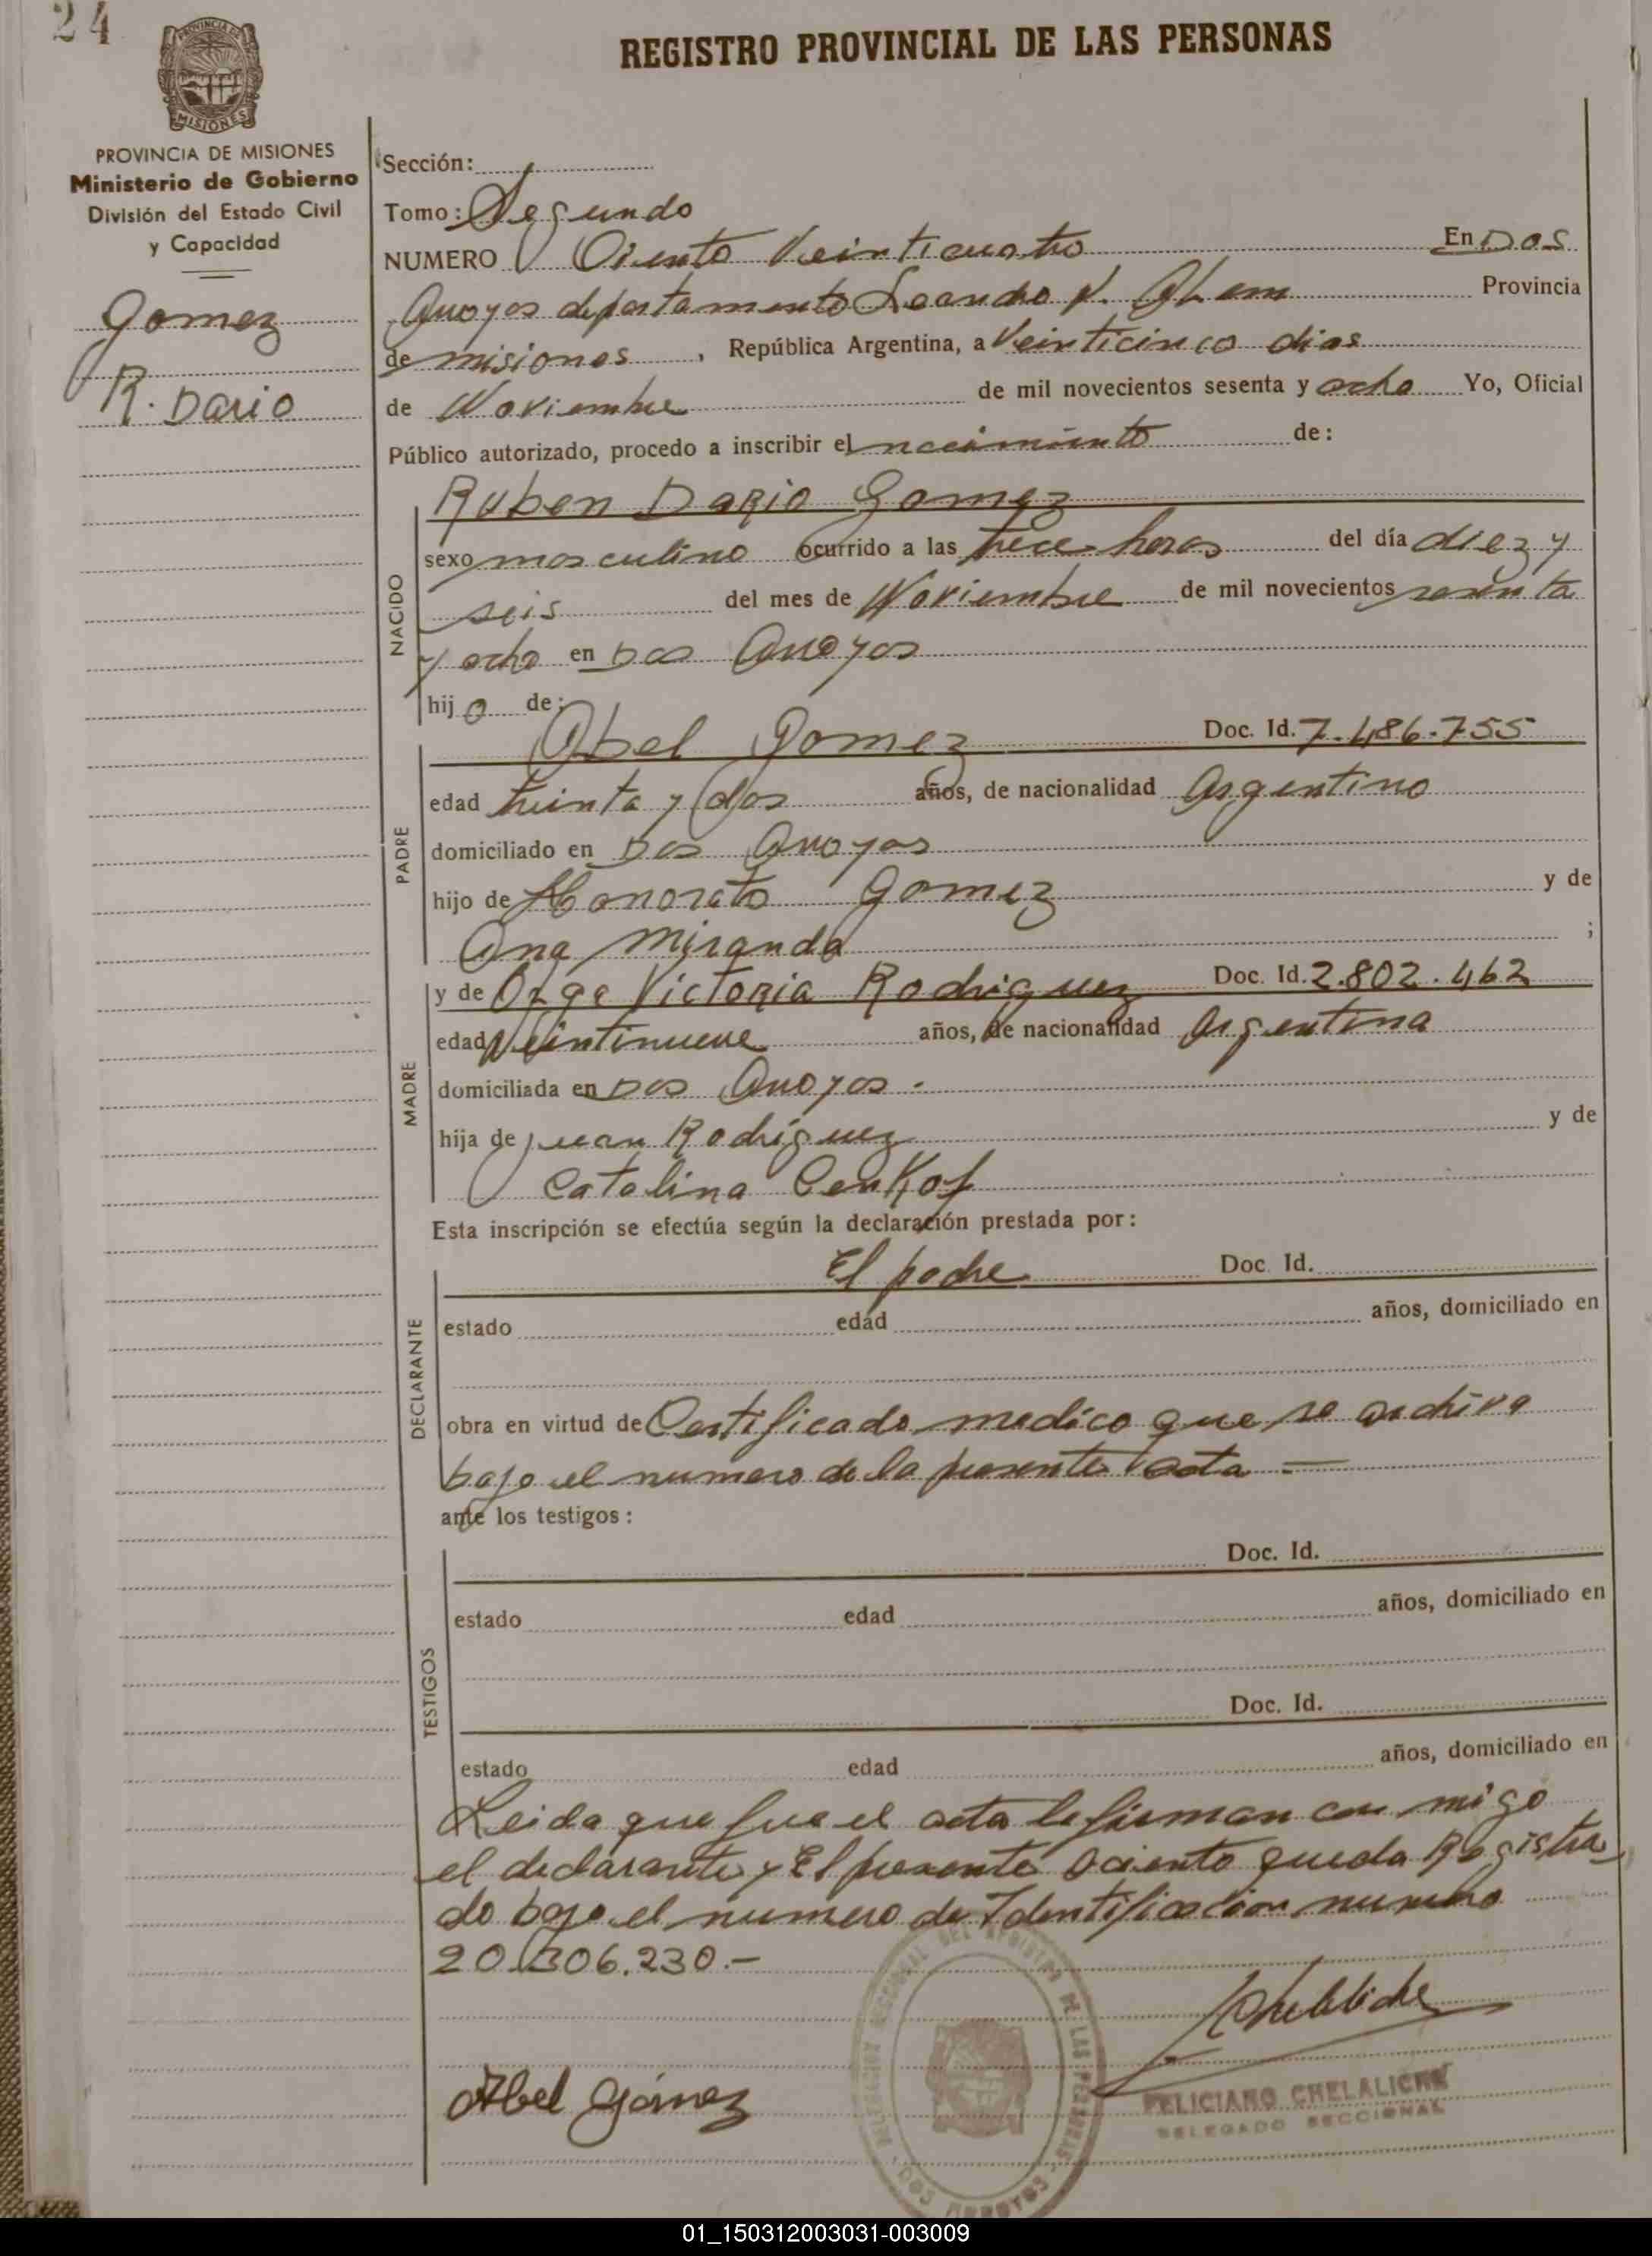 24
PROVINCIA DE
MISIONES
REGISTRO PROVINCIAL DE LAS PERSONAS
PROVINCIA DE MISIONES
Ministerio de Gobierno
División del Estado Civil
y Capacidad
Gomez
R. Dario
Sección:
Tomo: Segundo
NUMERO Ciento Veinticuatro En Dos
Arroyos departamento Leandro N. Alem Provincia
de misiones, República Argentina, a Veinticinco dias
de Noviembre de mil novecientos sesenta y ocho Yo, Oficial
Público autorizado, procedo a inscribir el nacimiento de:
NACIDO
Ruben Dario Gomez
sexo masculino ocurrido a las trece horas del día diez y
seis del mes de Noviembre de mil novecientos sesenta
y ocho en Dos Arroyos
hijo de:
PADRE
Abel Gomez Doc. Id. 7.486.755
edad treinta y dos años, de nacionalidad Argentino
domiciliado en Dos Arroyos
hijo de Honorato Gomez y de
Ana Miranda ;
MADRE
y de Victoria Rodriguez Doc. Id. 2.802.462
edad Veintinueve años, de nacionalidad Argentina
domiciliada en Dos Arroyos.
hija de Juan Rodriguez y de
Catalina
Esta inscripción se efectúa según la declaración prestada por:
DECLARANTE
El padre Doc. Id.
estado edad años, domiciliado en
obra en virtud de Certificado medico que se archiva
bajo el numero de la presente acta =
ante los testigos:
TESTIGOS
Doc. Id.
estado edad años, domiciliado en
Doc. Id.
estado edad años, domiciliado en
Leida que fue el acta la firman con migo
el declarante y El presente aciento queda Registra
do bajo el numero de Identificacion numero
20.306.230.-
Abel Gómez
Chelaliche
DELEGACION SECCIONAL DEL REGISTRO DE LAS PERSONAS - DOS ARROYOS -
FELICIANO CHELALICHE
DELEGADO SECCIONAL
01_150312003031-003009